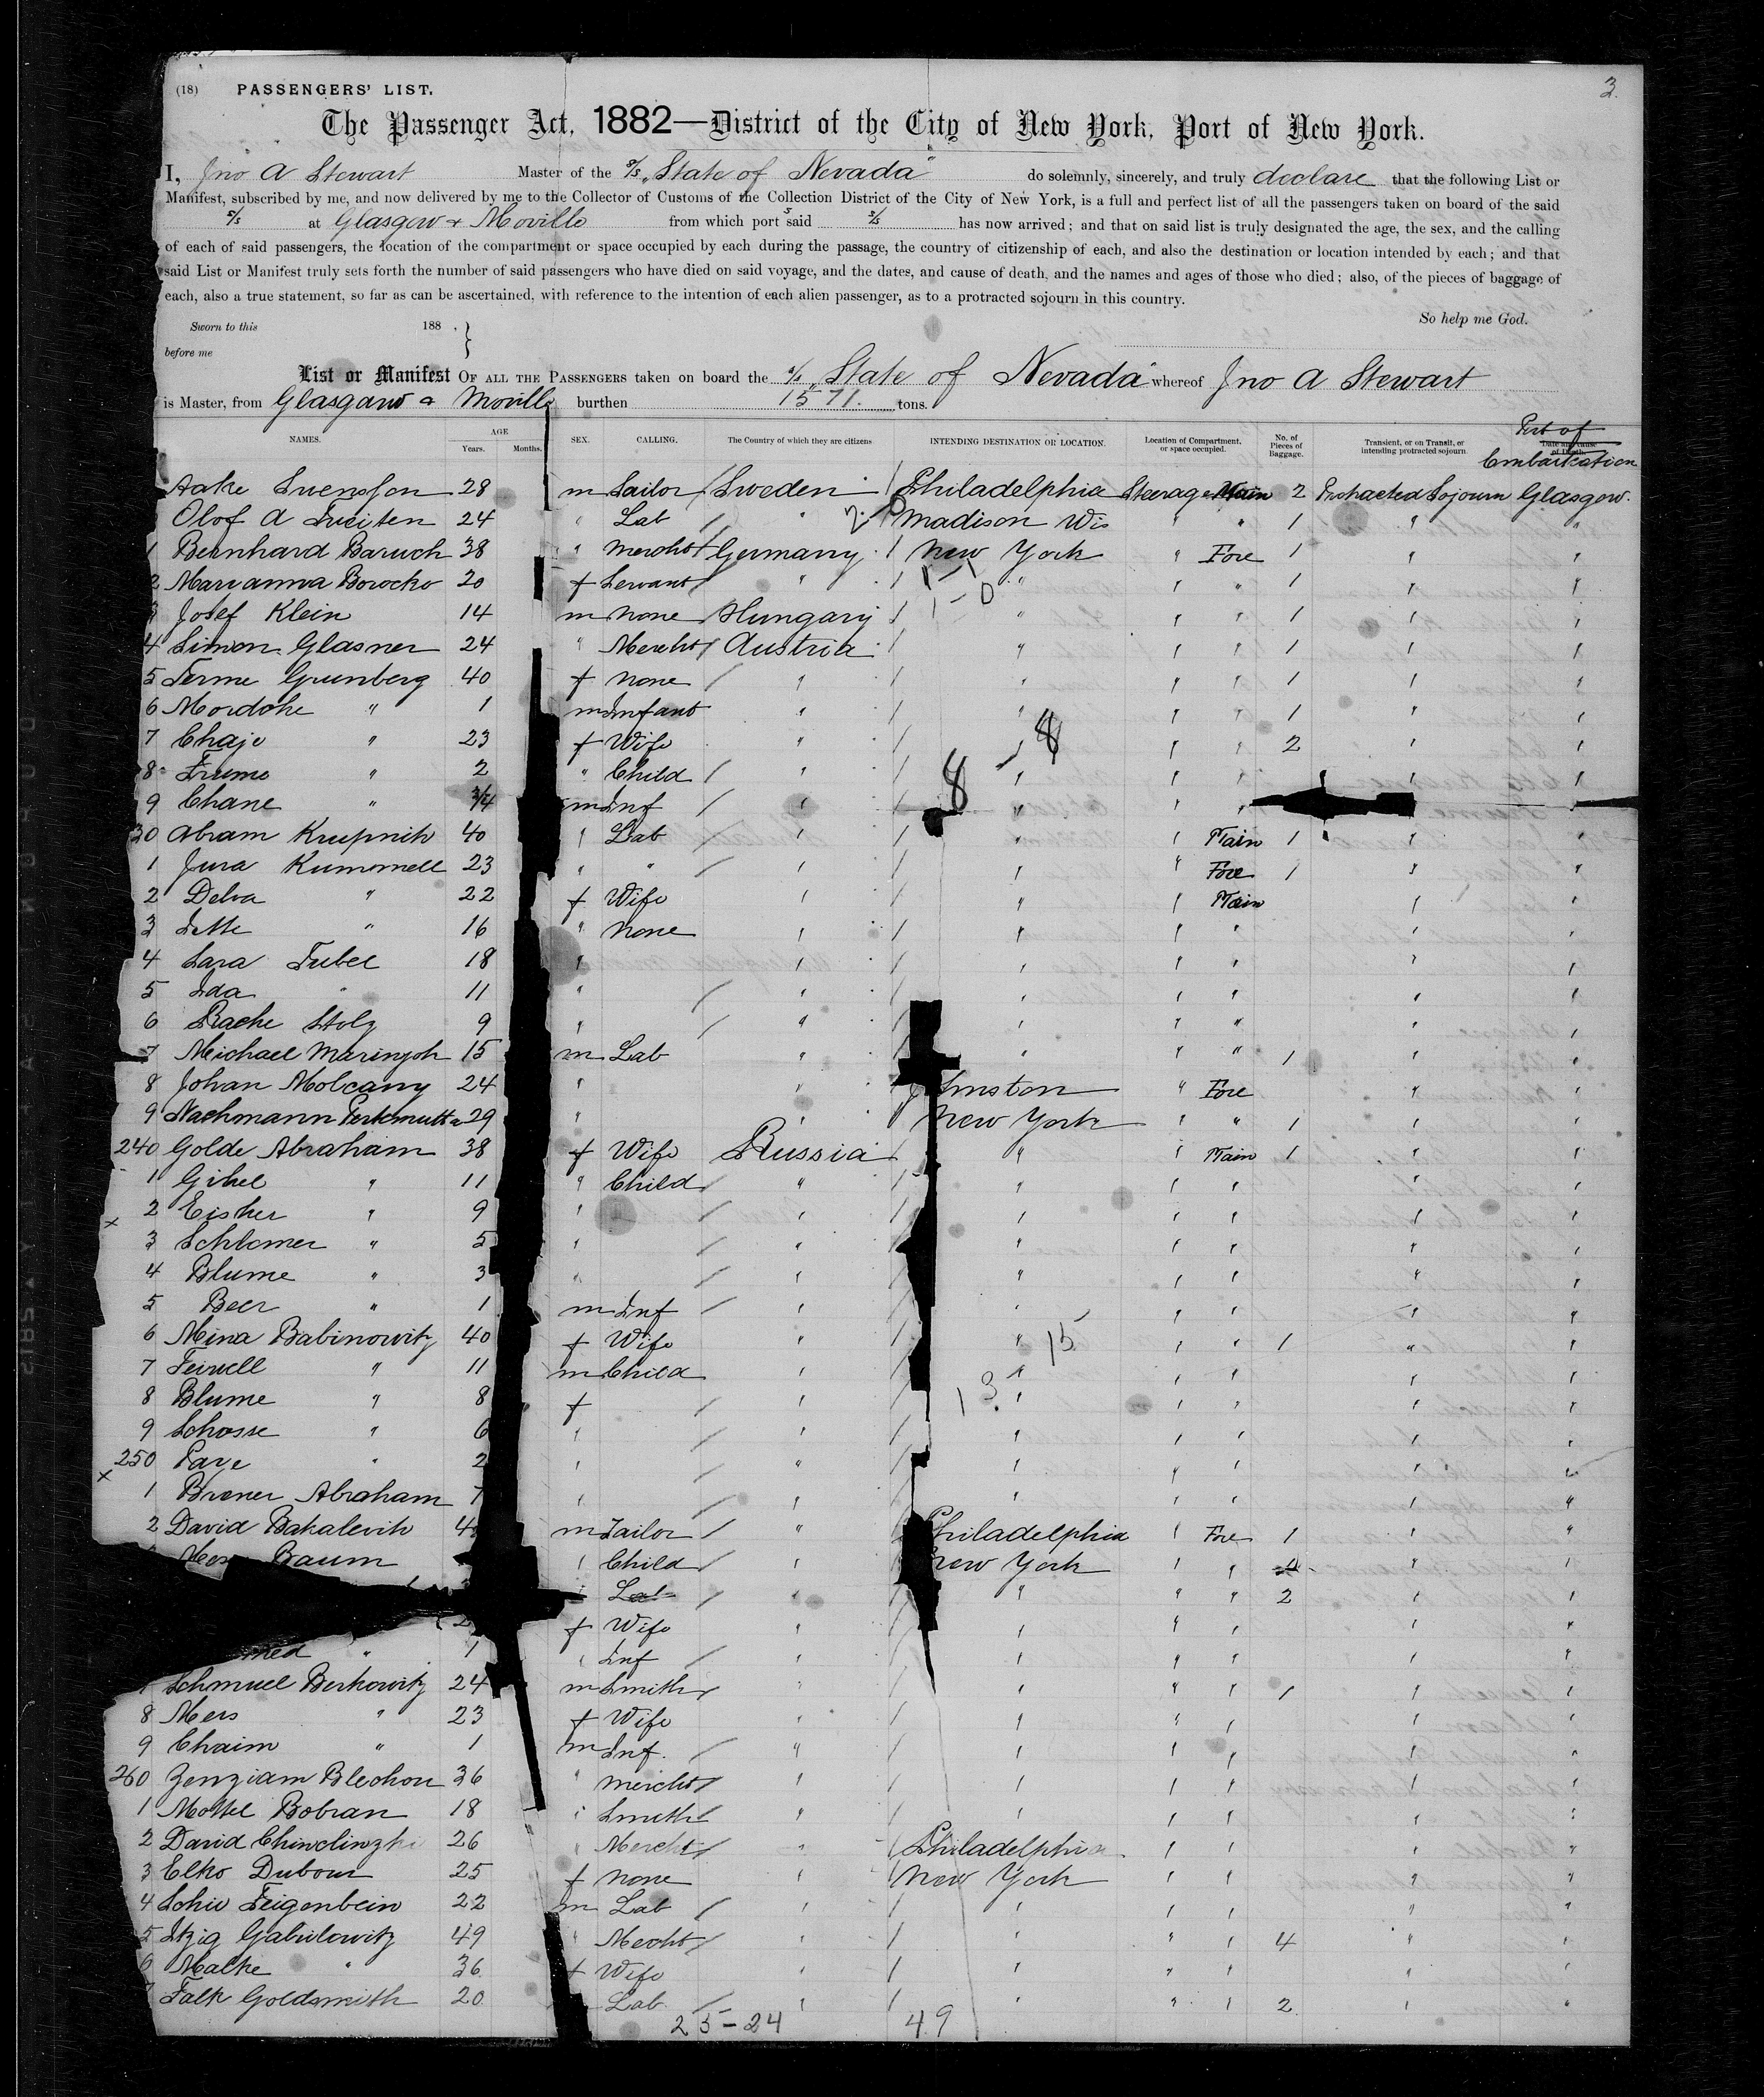 (18) PASSENGERS' LIST. 3
The Passenger Act, 1882—District of the City of New York, Port of New York.
I, Jno A Stewart Master of the S/S "State of Nevada" do solemnly, sincerely, and truly declare that the following List or
Manifest, subscribed by me, and now delivered by me to the Collector of Customs of the Collection District of the City of New York, is a full and perfect list of all the passengers taken on board of the said
S/S at Glasgow & Moville from which port s said S/S has now arrived; and that on said list is truly designated the age, the sex, and the calling
of each of said passengers, the location of the compartment or space occupied by each during the passage, the country of citizenship of each, and also the destination or location intended by each; and that
said List or Manifest truly sets forth the number of said passengers who have died on said voyage, and the dates, and cause of death, and the names and ages of those who died; also, of the pieces of baggage of
each, also a true statement, so far as can be ascertained, with reference to the intention of each alien passenger, as to a protracted sojourn in this country.
So help me God.
Sworn to this 188 .
before me
List or Manifest OF ALL THE PASSENGERS taken on board the S/S "State of Nevada" whereof Jno A Stewart
is Master, from Glasgow & Moville burthen 1571 tons.
NAMES. AGE Years. Months. SEX. CALLING. The Country of which they are citizens INTENDING DESTINATION OR LOCATION. Location of Compartment, or space occupied. No. of Pieces of Baggage. Transient, or on Transit, or intending protracted sojourn. Port of Embarkation
Aake Svensson 28 m Sailor Sweden Philadelphia Steerage Main 2 Protracted Sojourn Glasgow.
Olof A 24 " Lab " Madison Wis " " 1 " "
1 Bernhard Baruch 38 " Mercht Germany New York " Fore 1 " "
2 Marianna Borocko 20 f Servant " " " " 1 " "
3 Josef Klein 14 m None Hungary " " " 1 " "
4 Simon Glasner 24 " Mercht Austria " " " 1 " "
5 Grunberg 40 f None " " " " 1 " "
6 Mordche " 1 m Infant " " " " 1 " "
7 Chaje " 23 f Wife " " " " 2 " "
8 Frume " 2 " Child " " " " " "
9 Chane " 3/4 m Inf " " " " "
30 Abram Krupnik 40 " Lab " " " Main 1 " "
1 Jura 23 " " " " " Fore 1 " "
2 " 22 f Wife " " " Main " "
3 " 16 " None " " " " " "
4 Sara Tubel 18 " " " " " " "
5 Ida " 11 " " " " " " "
6 Rache Stolz 9 " " " " " " "
7 Michael 15 m Lab " " " " 1 " "
8 Johan Molcany 24 " " " Fore " "
9 Nachmann 29 " " New York " " 1 " "
240 Golde Abraham 38 f Wife Russia " " Main 1 " "
1 Gikel " 11 " Child " " " " " "
2 Eisher " 9 " " " " " " "
3 Schlomer " 5 " " " " " " "
4 Blume " 3 " " " " " " "
5 Beer " 1 m Inf " " " " " "
6 Mina Babinowitz 40 f Wife " " " " 1 " "
7 " 11 m Child " " " " " "
8 Blume " 8 f " " " " " "
9 Schosse " 6 " " " " " " "
250 " 2 " " " " " " "
1 Brener Abraham 7 " " " " " " "
2 David Bakalevik m Tailor " Philadelphia " Fore 1 " "
Baum " Child " New York " " " "
" Lab " " " " 2 " "
f Wife " " " " " "
" 1 " Inf " " " " " "
Schmuel Berkowitz 24 m Smith " " " " 1 " "
8 Mers " 23 f Wife " " " " " "
9 Chaim " 1 m Inf. " " " " " "
260 Zenziam Blechou 36 " Mercht " " " " " "
1 Mottel Bobran 18 " Smith " " " " " "
2 David 26 " Mercht " Philadelphia " " " "
3 Elko Dubour 25 f None " New York " " " "
4 Schie Feigenbein 22 m Lab " " " " " "
5 Itzig Gabilowitz 49 " Mecht " " " " 4 " "
6 Malke " 36 f Wife " " " " " "
7 Falk Goldsmith 20 Lab " " " " 2 " "
25-24 49